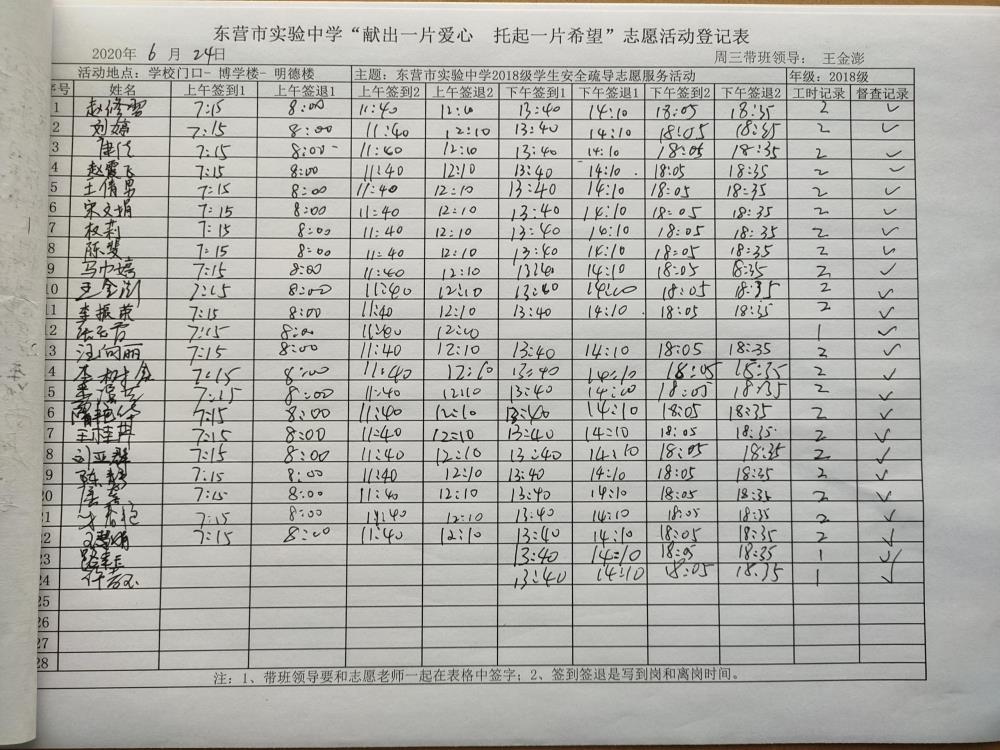 东营市实验中学“献出一片爱心 托起一片希望”志愿活动登记表
2020年 6 月 24日 周三带班领导: 王金澎
活动地点: 学校门口- 博学楼- 明德楼 主题: 东营市实验中学2018级学生安全疏导志愿服务活动 年级: 2018级
序号 姓名 上午签到1 上午签退1 上午签到2 上午签退2 下午签到1 下午签退1 下午签到2 下午签退2 工时记录 督查记录
1 赵修雪 7:15 8:00 11:40 12:10 13:40 14:10 18:05 18:35 2 ✓
2 刘婷 7:15 8:00 11:40 12:10 13:40 14:10 18:05 18:35 2 ✓
3 7:15 8:00 11:40 12:10 13:40 14:10 18:05 18:35 2 ✓
4 赵霞飞 7:15 8:00 11:40 12:10 13:40 14:10 18:05 18:35 2 ✓
5 王倩男 7:15 8:00 11:40 12:10 13:40 14:10 18:05 18:35 2 ✓
6 宋文娟 7:15 8:00 11:40 12:10 13:40 14:10 18:05 18:35 2 ✓
7 权莉 7:15 8:00 11:40 12:10 13:40 14:10 18:05 18:35 2 ✓
8 陈斐 7:15 8:00 11:40 12:10 13:40 14:10 18:05 18:35 2 ✓
9 7:15 8:00 11:40 12:10 13:40 14:10 18:05 18:35 2 ✓
10 王金澎 7:15 8:00 11:40 12:10 13:40 14:10 18:05 18:35 2 ✓
11 李振荣 7:15 8:00 11:40 12:10 13:40 14:10 18:05 18:35 2 ✓
12 7:15 8:00 11:40 12:10 1 ✓
13 汪向丽 7:15 8:00 11:40 12:10 13:40 14:10 18:05 18:35 2 ✓
14 7:15 8:00 11:40 12:10 13:40 14:10 18:05 18:35 2 ✓
15 7:15 8:00 11:40 12:10 13:40 14:10 18:05 18:35 2 ✓
16 隋艳华 7:15 8:00 11:40 12:10 13:40 14:10 18:05 18:35 2 ✓
17 王桂苹 7:15 8:00 11:40 12:10 13:40 14:10 18:05 18:35 2 ✓
18 刘亚群 7:15 8:00 11:40 12:10 13:40 14:10 18:05 18:35 2 ✓
19 7:15 8:00 11:40 12:10 13:40 14:10 18:05 18:35 2 ✓
20 7:15 8:00 11:40 12:10 13:40 14:10 18:05 18:35 2 ✓
21 7:15 8:00 11:40 12:10 13:40 14:10 18:05 18:35 2 ✓
22 7:15 8:00 11:40 12:10 13:40 14:10 18:05 18:35 2 ✓
23 13:40 14:10 18:05 18:35 1 ✓
24 13:40 14:10 18:05 18:35 1 ✓
25
26
27
28
注: 1、带班领导要和志愿老师一起在表格中签字; 2、签到签退是写到岗和离岗时间。